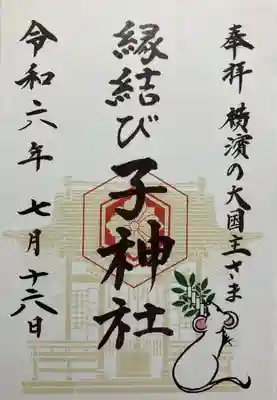 奉拝 横濱の大国主さま
縁結び子神社
令和六年 七月 十六日